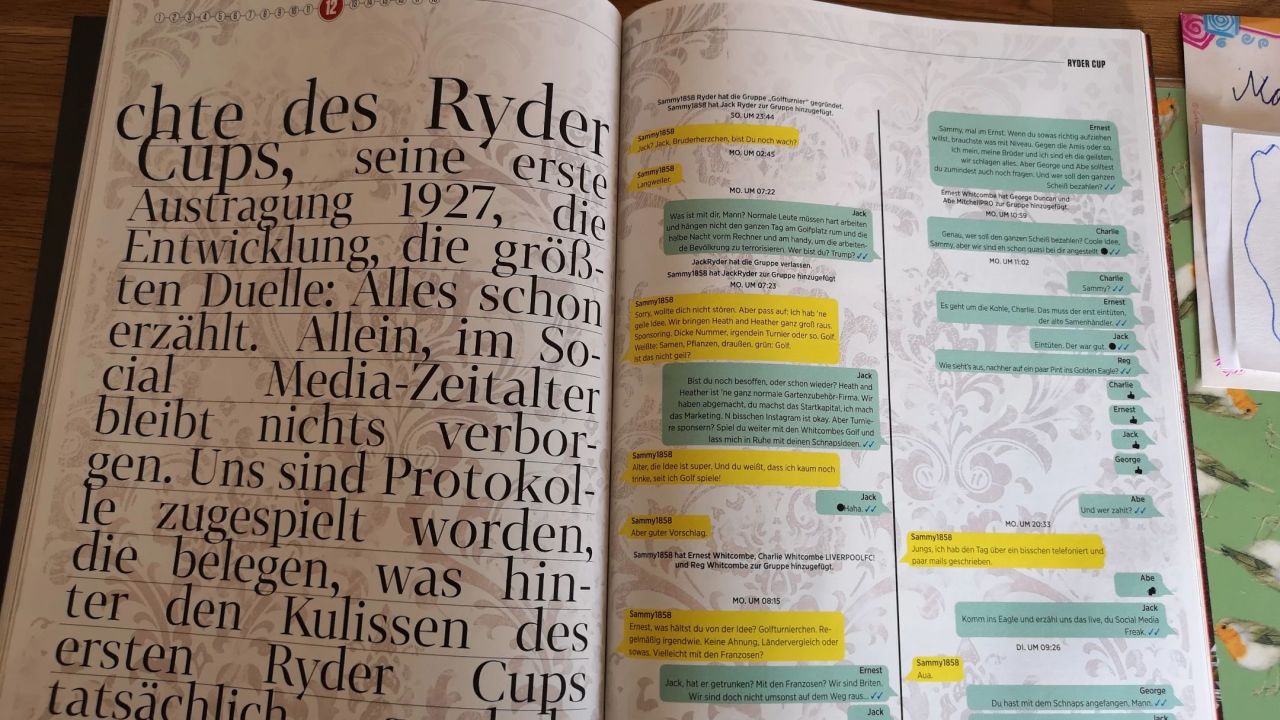 12
chte des Ryder
Cups, seine erste
Austragung 1927, die
Entwicklung, die größ-
ten Duelle: Alles schon
erzählt. Allein, im So-
cial Media-Zeitalter
bleibt nichts verbor-
gen. Uns sind Protokol-
le zugespielt worden,
die belegen, was hin-
ter den Kulissen des
ersten Ryder Cups
tatsächlich
RYDER CUP
Sammy1858 Ryder hat die Gruppe „Golfturnier" gegründet.
Sammy1858 hat Jack Ryder zur Gruppe hinzugefügt.
SO. UM 23:44
Sammy1858
Jack? Jack, Bruderherzchen, bist Du noch wach?
MO. UM 02:45
Sammy1858
Langweiler.
MO. UM 07:22
Jack
Was ist mit dir, Mann? Normale Leute müssen hart arbeiten
und hängen nicht den ganzen Tag am Golfplatz rum und die
halbe Nacht vorm Rechner und am handy, um die arbeiten-
de Bevölkrung zu terrorisieren. Wer bist du? Trump?
JackRyder hat die Gruppe verlassen.
Sammy1858 hat JackRyder zur Gruppe hinzugefügt
MO. UM 07:23
Sammy1858
Sorry, wollte dich nicht stören. Aber pass auf: Ich hab 'ne
geile Idee. Wir bringen Heath and Heather ganz groß raus.
Sponsoring. Dicke Nummer, irgendein Turnier oder so. Golf.
Weißte: Samen, Pflanzen, draußen, grün: Golf.
Ist das nicht geil?
Jack
Bist du noch besoffen, oder schon wieder? Heath and
Heather ist 'ne ganz normale Gartenzubehör-Firma. Wir
haben abgemacht, du machst das Startkapital, ich mach
das Marketing. N bisschen Instagram ist okay. Aber Turnie-
re sponsern? Spiel du weiter mit den Whitcombes Golf und
lass mich in Ruhe mit deinen Schnapsideen.
Sammy1858
Alter, die Idee ist super. Und du weißt, dass ich kaum noch
trinke, seit ich Golf spiele!
Jack
Haha.
Sammy1858
Aber guter Vorschlag.
Sammy1858 hat Ernest Whitcombe, Charlie Whitcombe LIVERPOOLFC!
und Reg Whitcombe zur Gruppe hinzugefügt.
MO. UM 08:15
Sammy1858
Ernest, was hältst du von der Idee? Golfturnierchen. Re-
gelmäßig irgendwie. Keine Ahnung, Ländervergleich oder
sowas. Vielleicht mit den Franzosen?
Ernest
Jack, hat er getrunken? Mit den Franzosen? Wir sind Briten.
Wir sind doch nicht umsonst auf dem Weg raus...
Jack
Ernest
Sammy, mal im Ernst. Wenn du sowas richtig aufziehen
willst, brauchste was mit Niveau. Gegen die Amis oder so.
Ich mein, meine Brüder und ich sind eh die geilsten,
wir schlagen alles. Aber George und Abe solltest
du zumindest auch noch fragen. Und wer soll den ganzen
Scheiß bezahlen?
Ernest Whitcombe hat George Duncan und
Abe MitchellPRO zur Gruppe hinzugefügt.
MO. UM 10:59
Charlie
Genau, wer soll den ganzen Scheiß bezahlen? Coole Idee,
Sammy, aber wir sind eh schon quasi bei dir angestellt.
MO. UM 11:02
Charlie
Sammy?
Ernest
Es geht um die Kohle, Charlie. Das muss der erst eintüten,
der alte Samenhändler.
Jack
Eintüten. Der war gut.
Reg
Wie sieht's aus, nachher auf ein paar Pint ins Golden Eagle?
Charlie
Ernest
Jack
George
Abe
Und wer zahlt?
MO. UM 20:33
Sammy1858
Jungs, ich hab den Tag über ein bisschen telefoniert und
paar mails geschrieben.
Abe
Jack
Komm ins Eagle und erzähl uns das live, du Social Media
Freak.
DI. UM 09:26
Sammy1858
Aua.
George
Du hast mit dem Schnaps angefangen, Mann.
Jack